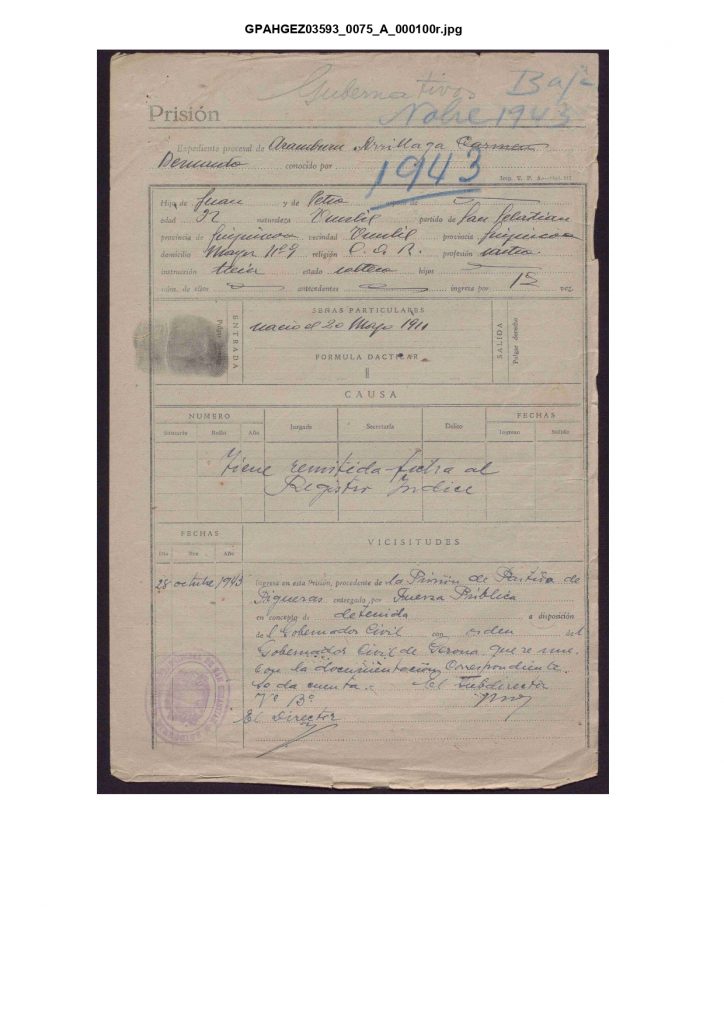 GPAHGEZ03593_0075_A_000100r.jpg
Gubernativos Baja
Nobre 1943
Prisión
Expediente procesal de Aramburu Arrillaga Carmen
conocido por
1943
Imp. T. P.
Hijo de Juan y de Petra
edad 32 naturaleza partido de San Sebastian
provincia de Guipúzcoa vecindad provincia Guipúzcoa
domicilio Mayor Nº 9 religión C. A. R. profesión
instrucción estado soltera hijos
núm. de antecedentes ingresa por 1ª vez.
SEÑAS PARTICULARES
nacio el 20 Mayo 1911
ENTRADA
Pulgar
FORMULA DACTILAR
SALIDA
Pulgar derecho
CAUSA
NUMERO FECHAS
Sumario Rollo Año Juzgado Secretaría Delito Ingreso Salida
Tiene remitida ficha al
Registro Indice
FECHAS VICISITUDES
Día Mes Año
28 octubre 1943 Ingresa en esta Prisión, procedente de la Prisión de Partido de
Figueras entregado por Fuerza Pública
en concepto de detenida a disposición
del Gobernador Civil con orden del
Gobernador Civil de Gerona que se une
con la documentación correspondiente.
Se da cuenta.- El Subdirector
Vº Bº
El Director